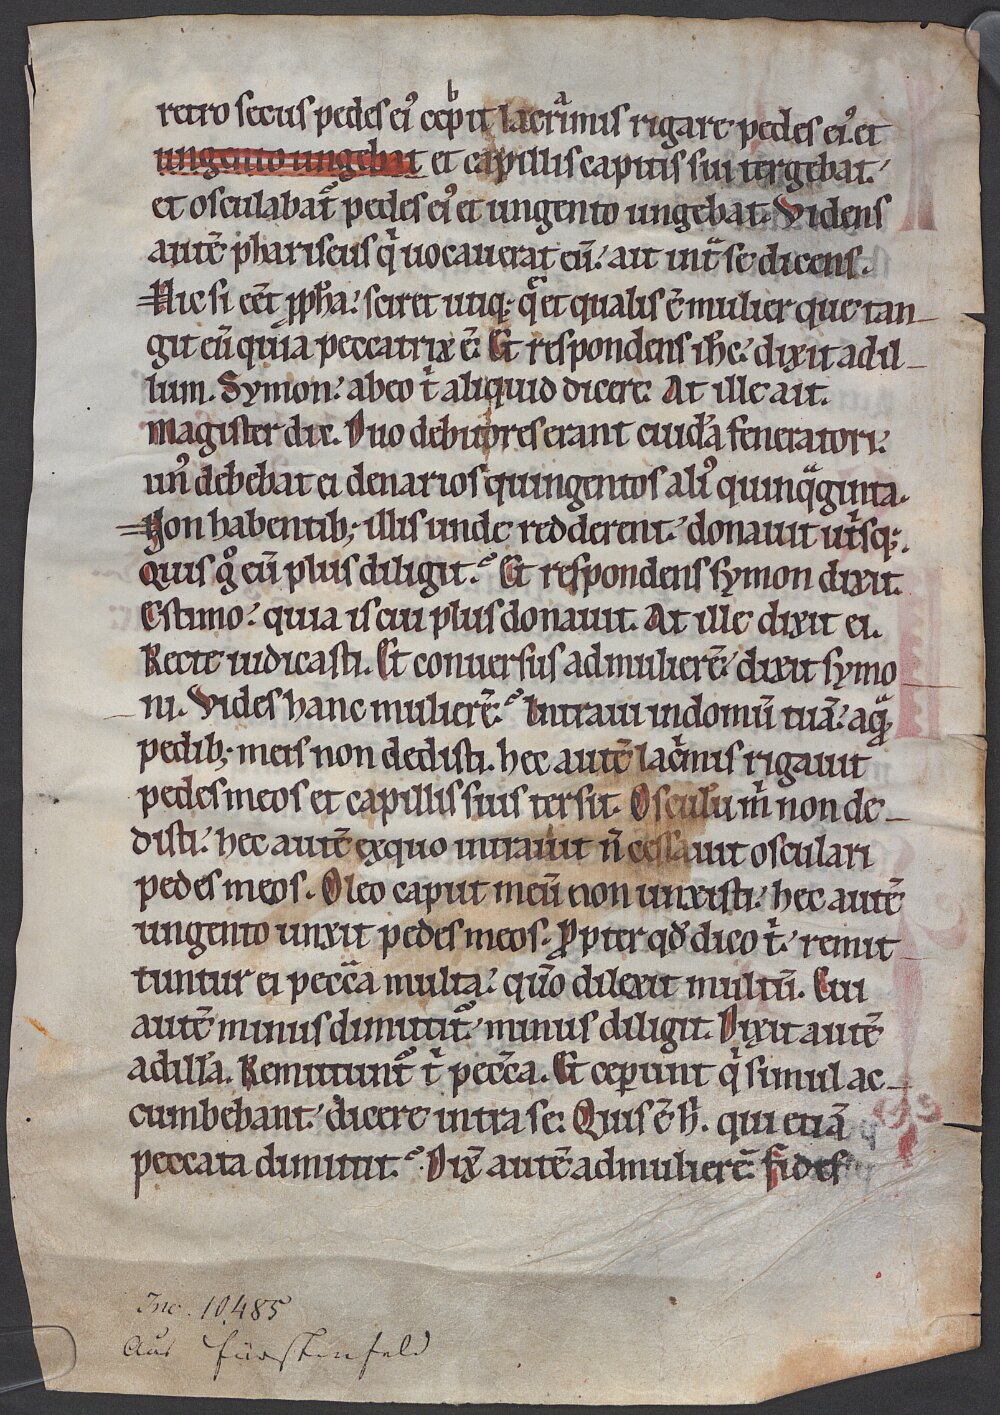 retro secus pedes ei᾿ cep̄ it lacrimis rigare pedes ei᾿. et
ungento ungebat et capillis capitis sui tergebat.
et osculabat᷑ pedes ei᾿ et ungento ungebat. Videns
autē phariseus q̇ uocauerat eū. ait int᷑ se dicens.
Hic si eēt ꝓpha. sciret utiq; q̄ et qualis ē mulier que tan
git eū quia peccatrix ē. Et respondens ihc. dixit ad il
lum. Symon. abeo t̄ aliquid dicere. At ille ait.
magister dic. Duo debitores erant cuidā feneratori.
un᾿ debebat ei denarios quingentos ali᾿ quinq̄ginta.
Non habentib; illis unde redderent. donauit ut̄sq;.
Quis g̊ eū plus diligit. Et respondens symon dixit.
Estimo. quia is cui plus donauit. At ille dixit ei.
Recte iudicasti. Et conuersus ad mulierē. dixit symo
ni. Vides hanc mulierē. Intraui in domū tuā. aq̄
pedib; meis non dedisti. hec autē lac̄mis rigauit
pedes meos et capillis suis tersit. Osculū m̄ non de
disti. hec autē exquo intrauit n̄ cessauit osculari
pedes meos. Oleo caput meū non unxisti. hec autē
ungento unxit pedes meos. Ꝓpter qđ dico t̄. remit
tuntur ei pecc̄a multa. qūo dilexit multū. Cui
autē minus dimittit᷑. minus diligit. Dixit autē
ad illā. Remittunt᷑ t̄ pecc̄a. Et ceperunt q̇ simul ac
cumbebant. dicere intra se. Quis ē h̄. qui etiā
peccata dimittit. Dix̄ autē ad mulierē. fides
Inc. 10,485
Aus Fürstenfeld